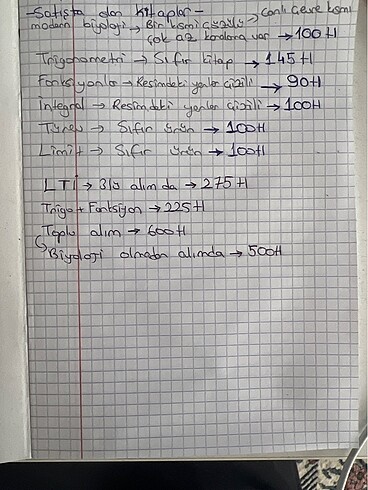 -Satışta olan kitaplar-
modern biyoloji → Bir kısmı çizili → Canlı Çevre kısmı
çok az karalama var → 100tl
Trigonometri → Sıfır kitap → 145 tl
Fonksiyonlar → Resimdeki yerler çizili → 90tl
İntegral → Resimdeki yerler çizili → 100tl
Türev → Sıfır ürün → 100tl
Limit → Sıfır ürün → 100tl
LTİ → 3lü alımda → 275tl
Trigo + Fonksiyon → 225tl
Toplu alım → 600tl
Biyoloji olmadan alımda → 500tl